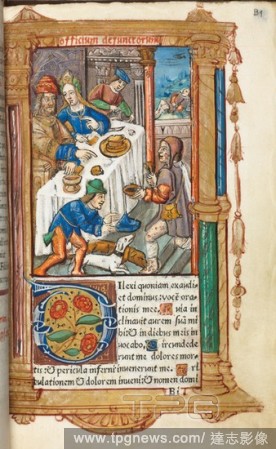 officium defunctorum
Dilexi quoniam exaudi
et dominus: vocē ora
tionis mee. Quia in
clinavit aurem suā mi
hi: & in diebus meis in
vocabo. Circundede
runt me dolores mor
tis: & pericula inferni invenerunt me. Tri
bulationem & dolorem inveni: & nomen domi
B i
www.tpgnews.com / 達志影像